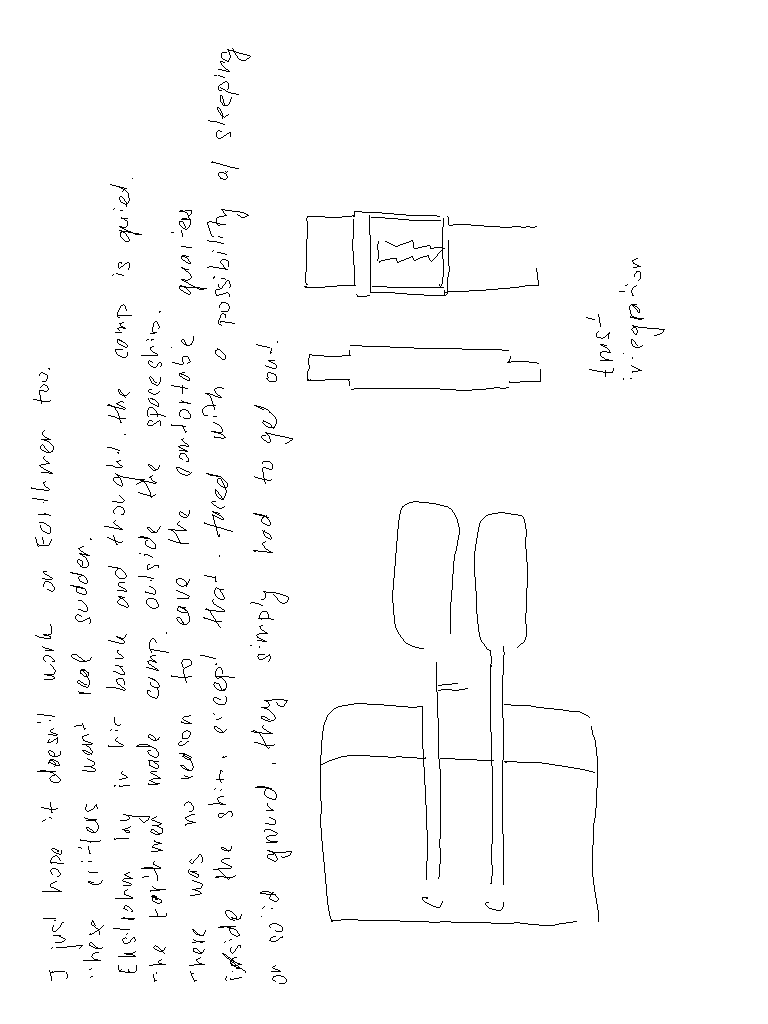 I just hope it doesn't work on Earthmen too.
These critters went real sudden.
lay in his bunk and thought, the camp is quiet.
The Earthmen made camp outside the spaceship.
There was no reason to leave the comfortable quarters
inside the ship, except that, faced with a possibility of sleeping
on solid ground, they simply had to get out.
trust
integration
C
C